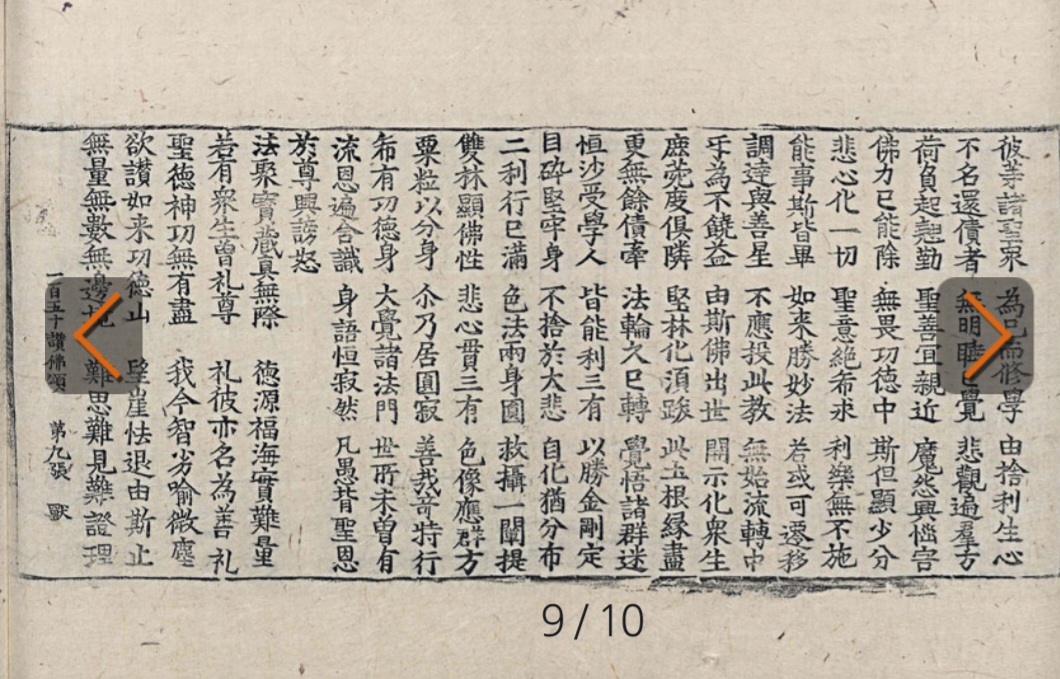 彼䓁諸聖衆 為己而修學 由捨利生心
不名還債者 無明睡已覺 悲觀遍羣方
荷負起翹勤 聖善宜親近 魔怨興惱害
佛力已能除 無畏功德中 斯但顯少分
悲心化一切 聖意絕希求 利樂無不施
能事斯皆畢 如来勝妙法 若或可遷移
調達與善星 不應投此教 無始流轉中
互為不饒益 由斯佛出世 開示化衆生
鹿苑度俱隣 堅林化須跋 此土根緣盡
更無餘債牽 法輪久已轉 覺悟諸群迷
恒沙受學人 皆能利三有 以勝金剛定
目碎堅牢身 不捨於大悲 自化猶分布
二利行已滿 色法兩身圓 救攝一闡提
雙林顯佛性 悲心貫三有 色像應群方
粟粒以分身 尒乃居圓寂 善哉奇特行
希有功德身 大覺諸法門 世所未曾有
流恩遍含識 身語恒寂然 凡愚背聖恩
於尊興謗怒
法聚寶藏真無際 德源福海實難量
若有衆生曾礼尊 礼彼亦名為善礼
聖德神功無有盡 我今智劣喻微塵
欲讃如来功德山 望崖怯退由斯止
無量無數無邊境 難思難見難證理
一百五十讃佛頌 第九張 獸
9 / 10